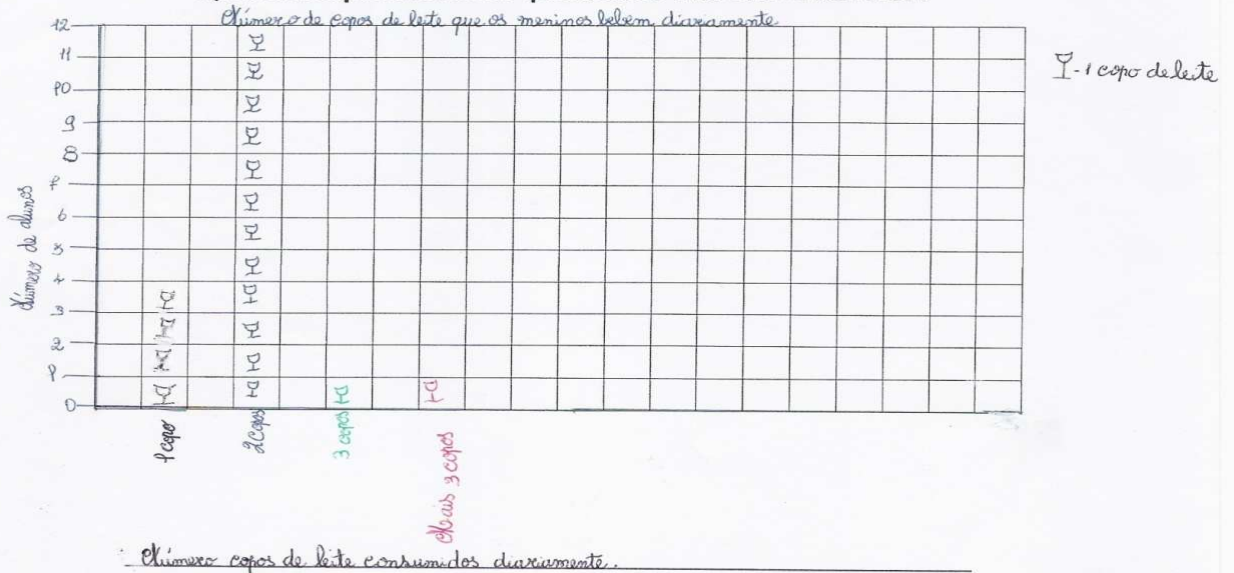 Número de copos de leite que os meninos bebem diariamente
12
11
10
9
8
7
6
5
4
3
2
1
0
Número de alunos
- 1 copo de leite
1 copo
2 copos
3 copos
Mais 3 copos
Número copos de leite consumidos diariamente.